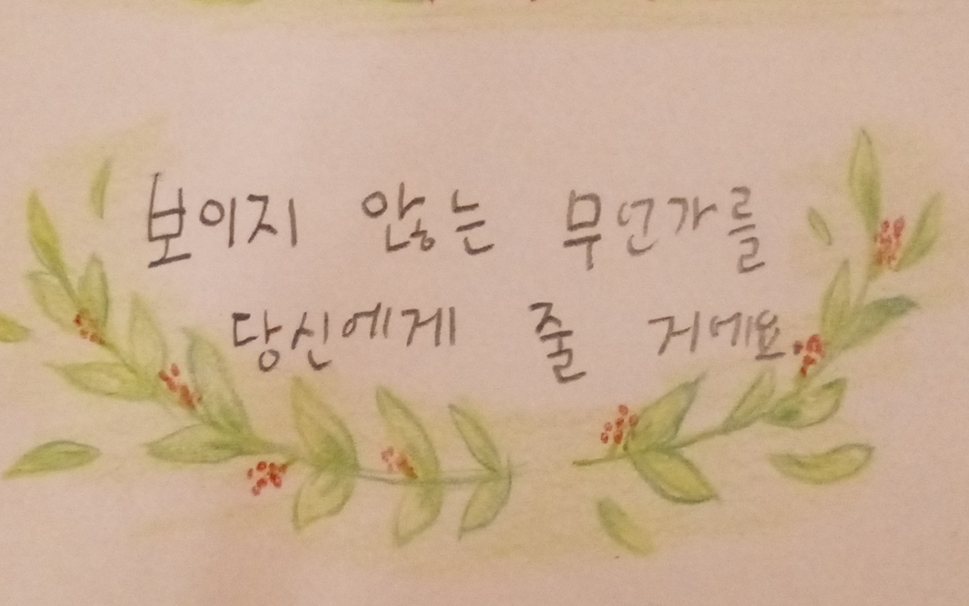 보이지 않는 무언가를
당신에게 줄 거에요